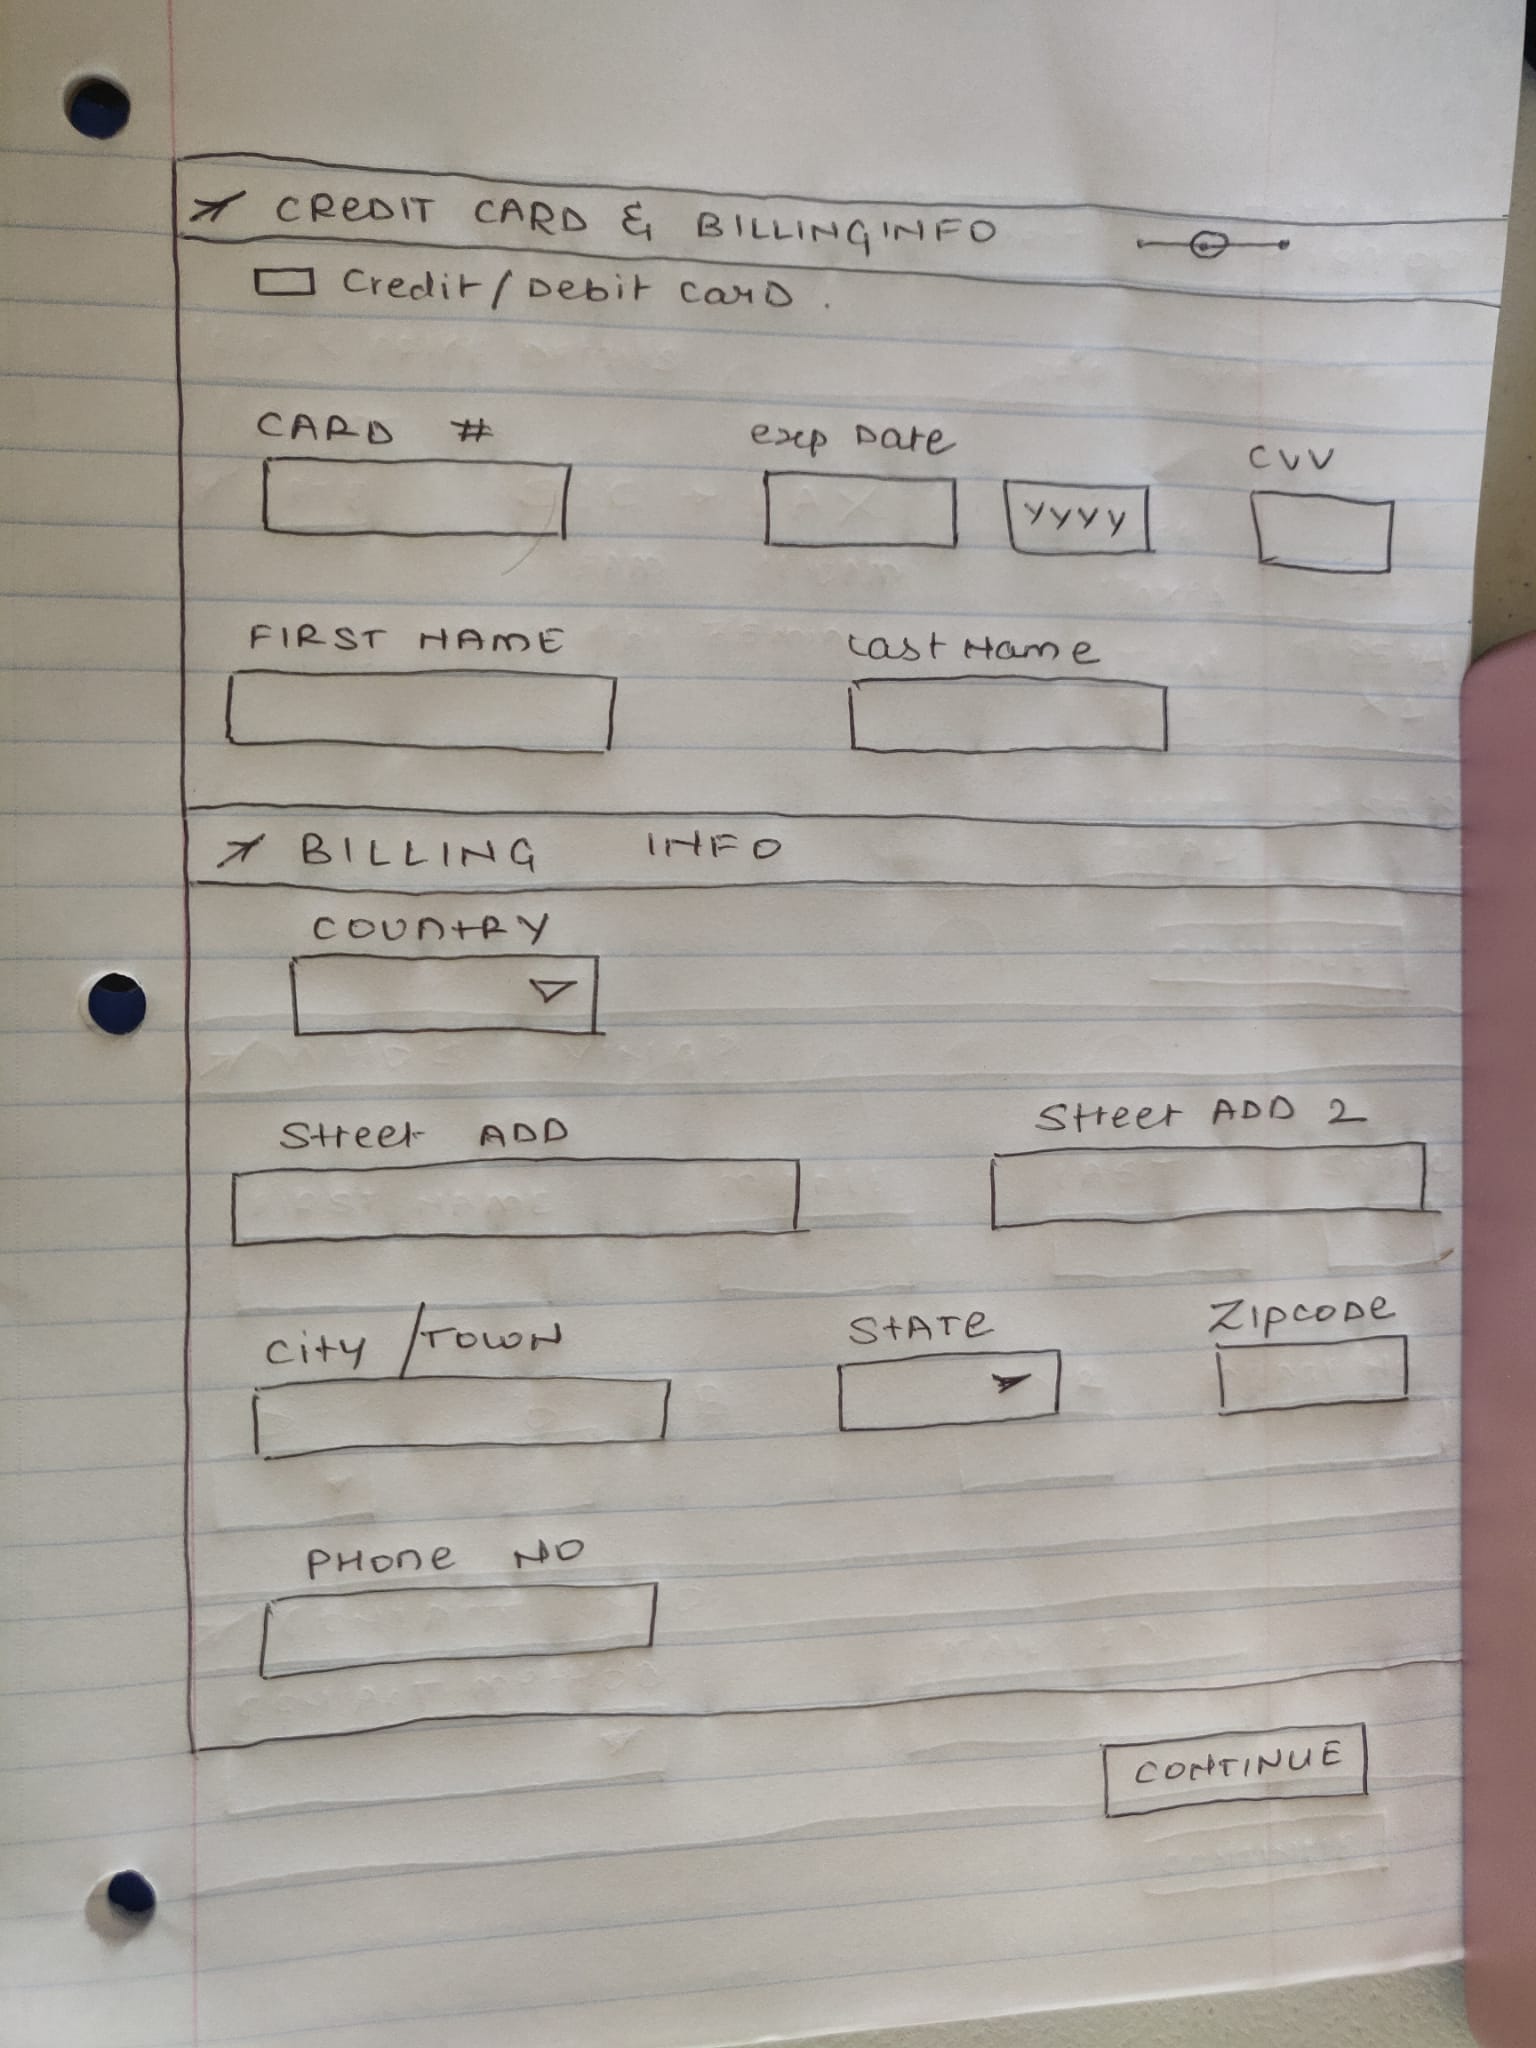 CREDIT CARD & BILLING INFO
Credit/Debit card.
CARD #
exp Date
CVV
YYYY
FIRST NAME
Last Name
BILLING INFO
COUNTRY
Street ADD
Street ADD 2
City/TOWN
STATE
Zipcode
PHONE NO
CONTINUE